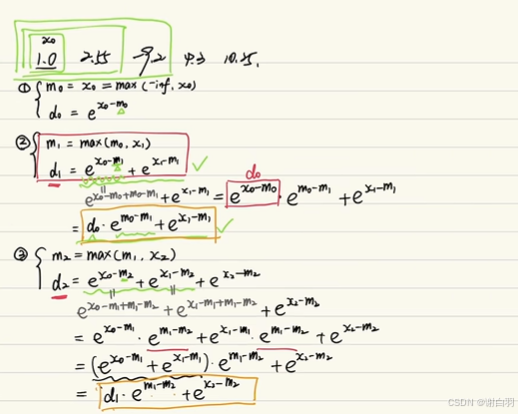 x₀
1.0 2.55 9.2 4.3 10.25.
① { m₀ = x₀ = max(-inf, x₀)
d₀ = e^{x₀-m₀}
② { m₁ = max(m₀, x₁)
d₁ = e^{x₀-m₁} + e^{x₁-m₁} ✓
d₀
e^{x₀-m₀+m₀-m₁} + e^{x₁-m₁} = e^{x₀-m₀} · e^{m₀-m₁} + e^{x₁-m₁}
= d₀ · e^{m₀-m₁} + e^{x₁-m₁} ✓
③ { m₂ = max(m₁, x₂)
d₂ = e^{x₀-m₂} + e^{x₁-m₂} + e^{x₂-m₂}
e^{x₀-m₁+m₁-m₂} + e^{x₁-m₁+m₁-m₂} + e^{x₂-m₂}
= e^{x₀-m₁} · e^{m₁-m₂} + e^{x₁-m₁} · e^{m₁-m₂} + e^{x₂-m₂}
= (e^{x₀-m₁} + e^{x₁-m₁}) · e^{m₁-m₂} + e^{x₂-m₂}
= d₁ · e^{m₁-m₂} + e^{x₂-m₂}
CSDN @谢白羽